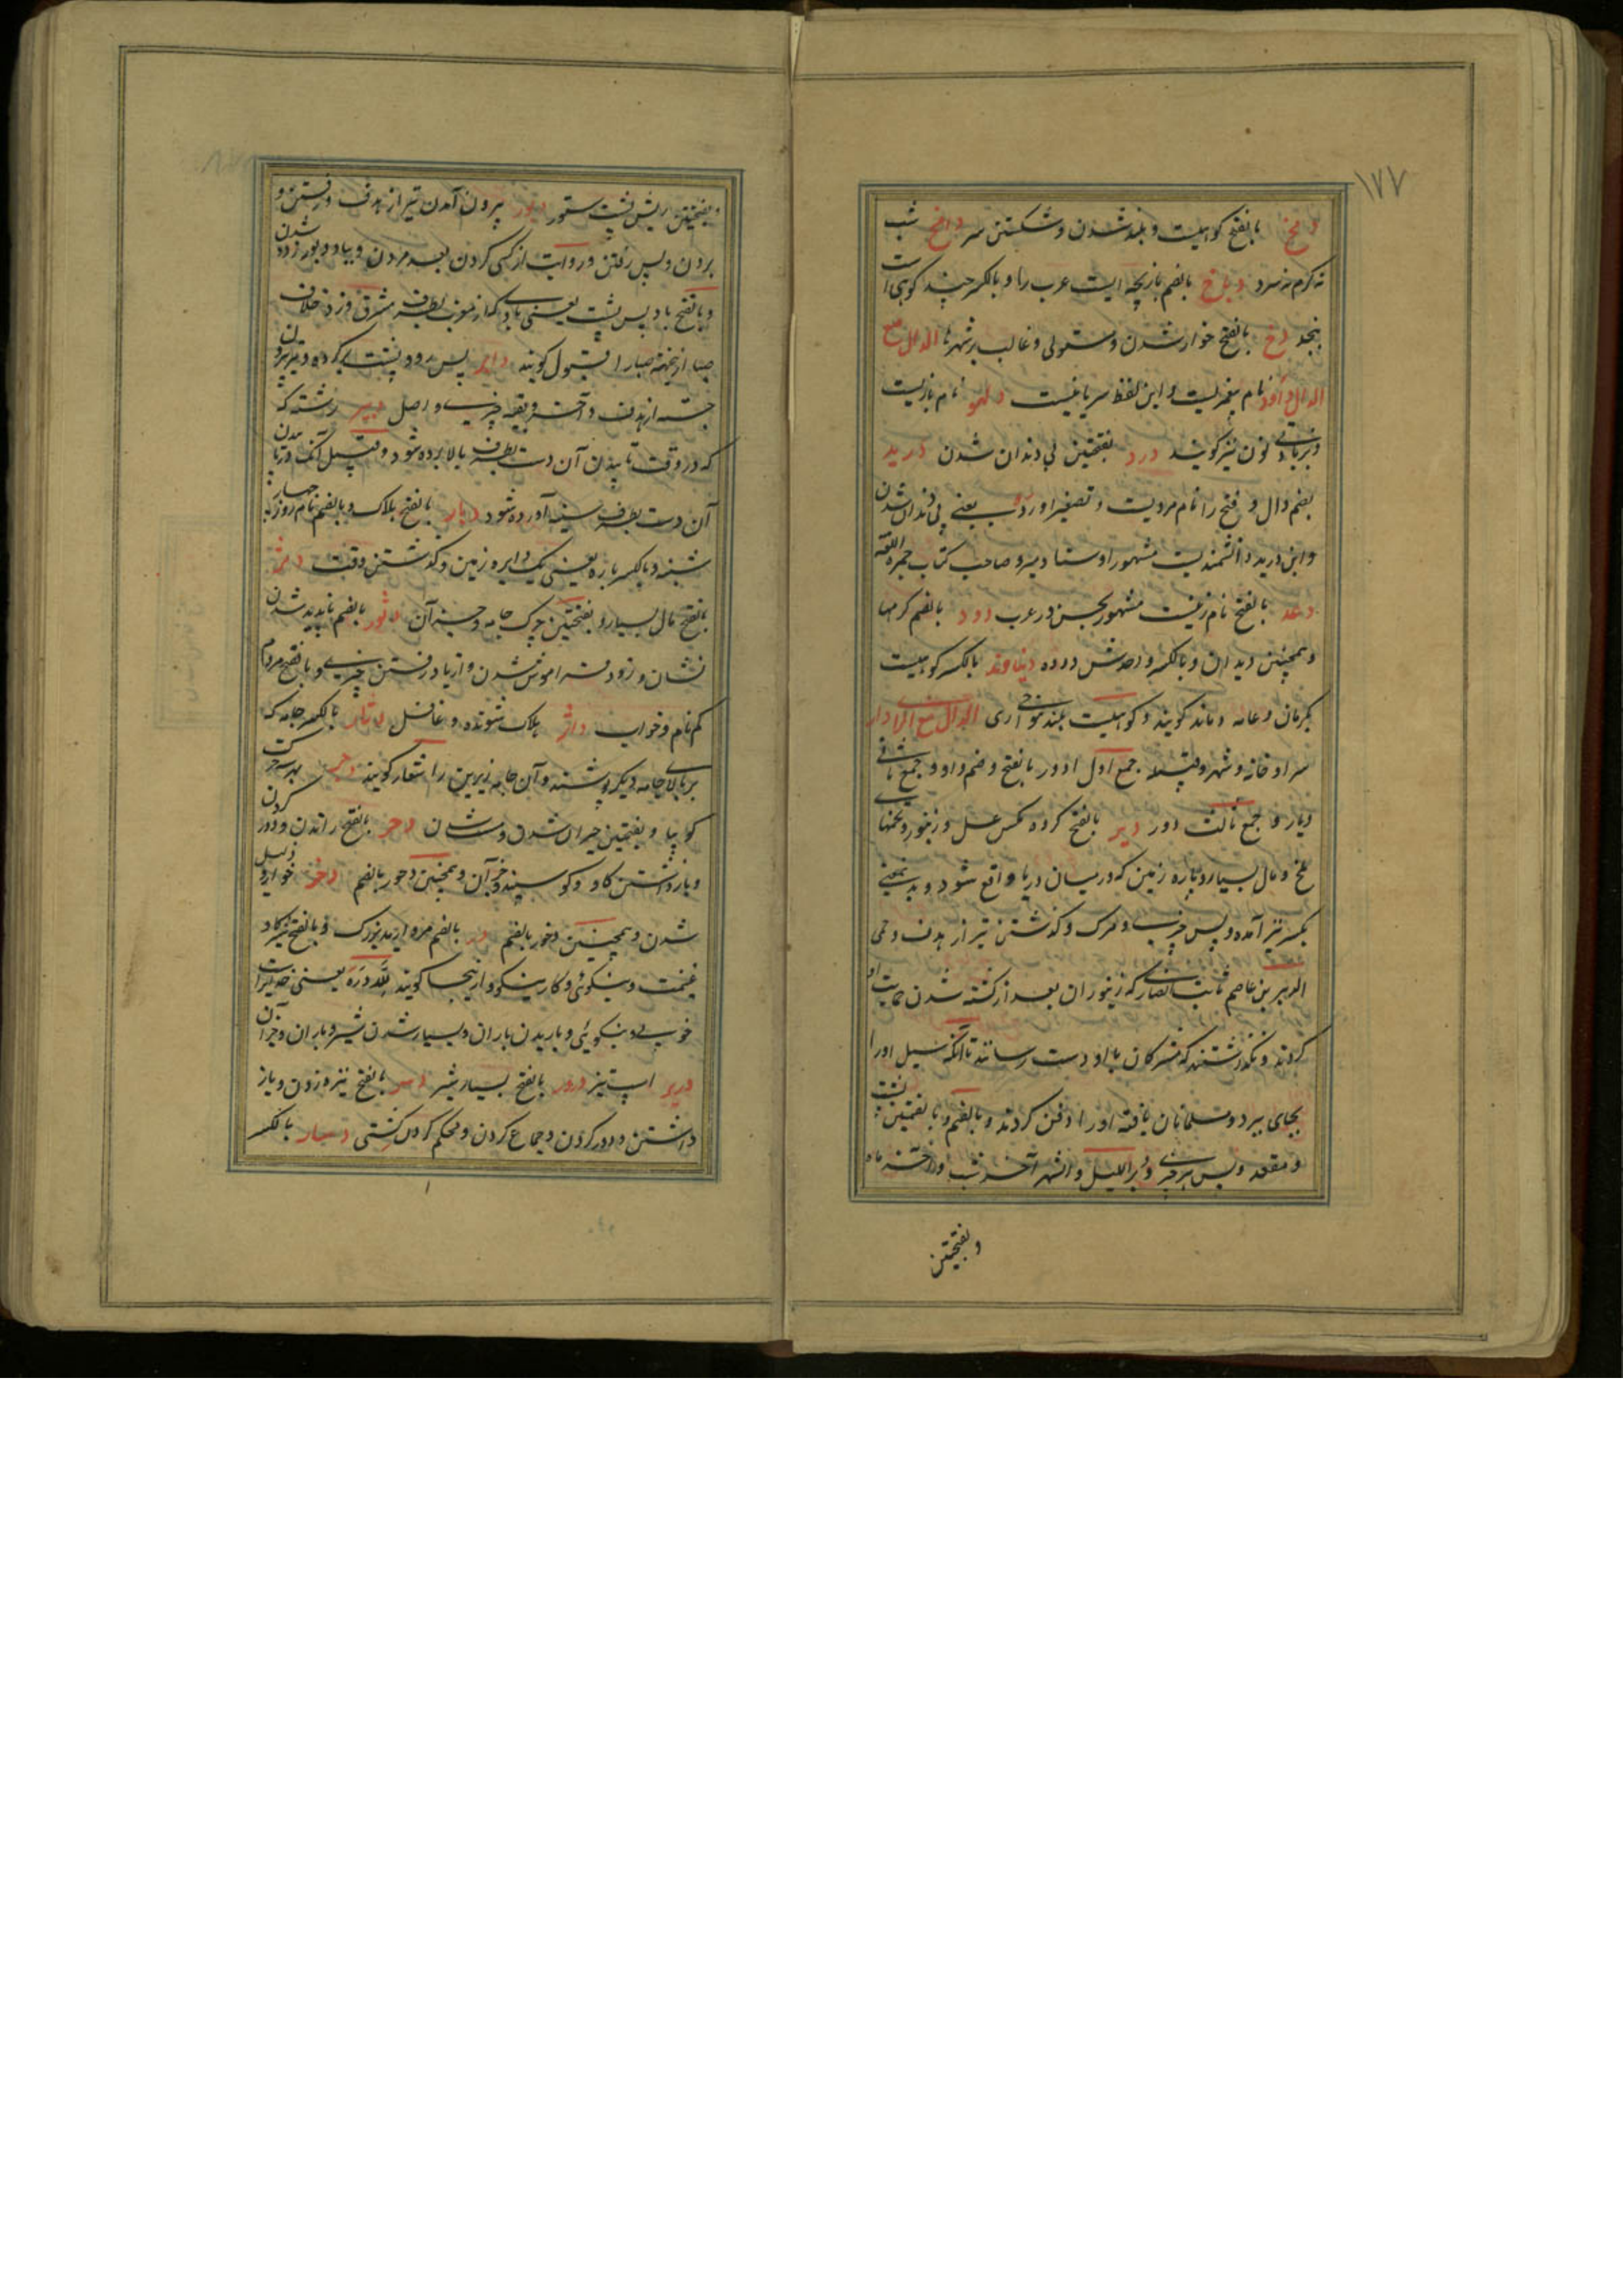 ۱۷۷
دمخ بالفتح کوهیست و بلند شدن و شکستن سر دامخ شب
نه گرم نه سرد دباخ بالضم بازیچه ایست عرب را و بالکسر چند کوهی است
بنجد دخ بالفتح خوار شدن و مستولی و غالب بر شهرها الدال مع
الدال داود نام پیغمبریست و این لفظ سریانیست نام بازیست
نون نیز گویند درد بفتحتین بی دندان شدن درید
بضم دال و فتح را نام مردیست و تصغیر ادرد یعنی بی دندان شدن
و ابن درید دانشمندیست مشهور اوستاد میرو صاحب کتاب جمهره اللغة
دعد بالفتح نام زنیست مشهور بحسن در عرب دود بالضم کرمها
و همچنین دیدان و بالکسر واحدش دوده دنباوند بالکسر کوهیست
بکرمان و عامه دماوند گویند و کوهیست بلند نواحی ری الدال مع الراء دار
سرا و خانه و شهر و قبیله جمع اول ادور بالفتح و ضم واو و جمع ثانی
دیار و جمع ثالث دور دبر بالفتح گروه مگس عسل و زنبور و تخمهای
ملخ و مال بسیار و پاره زمین که در میان دریا واقع شود و بدین معنی
بکسر نیز آمده و پس چیزی و مرگ و گذشتن تیر از هدف و حمی
الدبر بن عاصم ثابت انصاری که زنبوران بعد از کشته شدن حمایت او
کردند و نگذاشتند که مشرکان باو دست رسانند تا آنکه سیل او را
بجای برد و مسلمانان یافته او را دفن کردند و بالضم و بالضمتین پشت
و مقعد و پس هر چیزی و دبر اللیل و الشهر آخر شب و آخر ماه
و بفتحتین
و بفتحتین ریش پشت ستور دبور بیرون آمدن تیر از هدف و رفتن و
بردن و پس رفتن و روایت از کسی کردن بعد مردن و بباد دبور زده شدن
و بالفتح باد پس پشت یعنی بادی که از مغرب بطرف مشرق وزد خلاف
صبا ازینجهة صبا را قبول گویند دابر پس رو و پشت کرده و تیر بیرون
جسته از هدف و آخر و بقیه چیزی و اصل دبیر رشته که
که در وقت تابیدن آن دست بطرف بالا برده شود و قبیل آنکه در تابیدن
آن دست بطرف سینه آورده شود دبار بالفتح هلاک و بالضم نام روز چهار
شنبه و بالکسر پاره یعنی یک دابره زمین و گذشتن وقت دثر
بالفتح مال بسیار و بفتحتین چرک جامه و جز آن دثور بالضم ناپدید شدن
نشان و زود فراموش شدن و از یاد رفتن چیزی و بالفتح مردم
گم نام و خواب داثر هلاک شونده و غافل دثار بالکسر جامه که
بر بالای جامه دیگر پوشند و آن جامه زیرین را شعار گویند دجر بهر سه حرکت
لوبیا و بفتحتین حیران شدن و مست شدن دحر بالفتح راندن و دور کردن
و بازداشتن گاو و گوسپند و جز آن و همچنین دحور بالضم دخر خوار و ذلیل
شدن و همچنین دخور بالضم در بالضم مروارید بزرگ و بالفتح شیر گاو
غنیمت و نیکوئی و کار نیکو و ازینجا گویند لله دره یعنی خدایراست
خوبی و نیکوئی و باریدن باران و بسیار شدن شیر و باران و جز آن
دریر اسپ تیز درور بالفتح بسیار شیر دسر بالفتح نیزه زدن و باز
داشتن و دور کردن و جماع کردن و محکم کردن کشتی دسار بالکسر